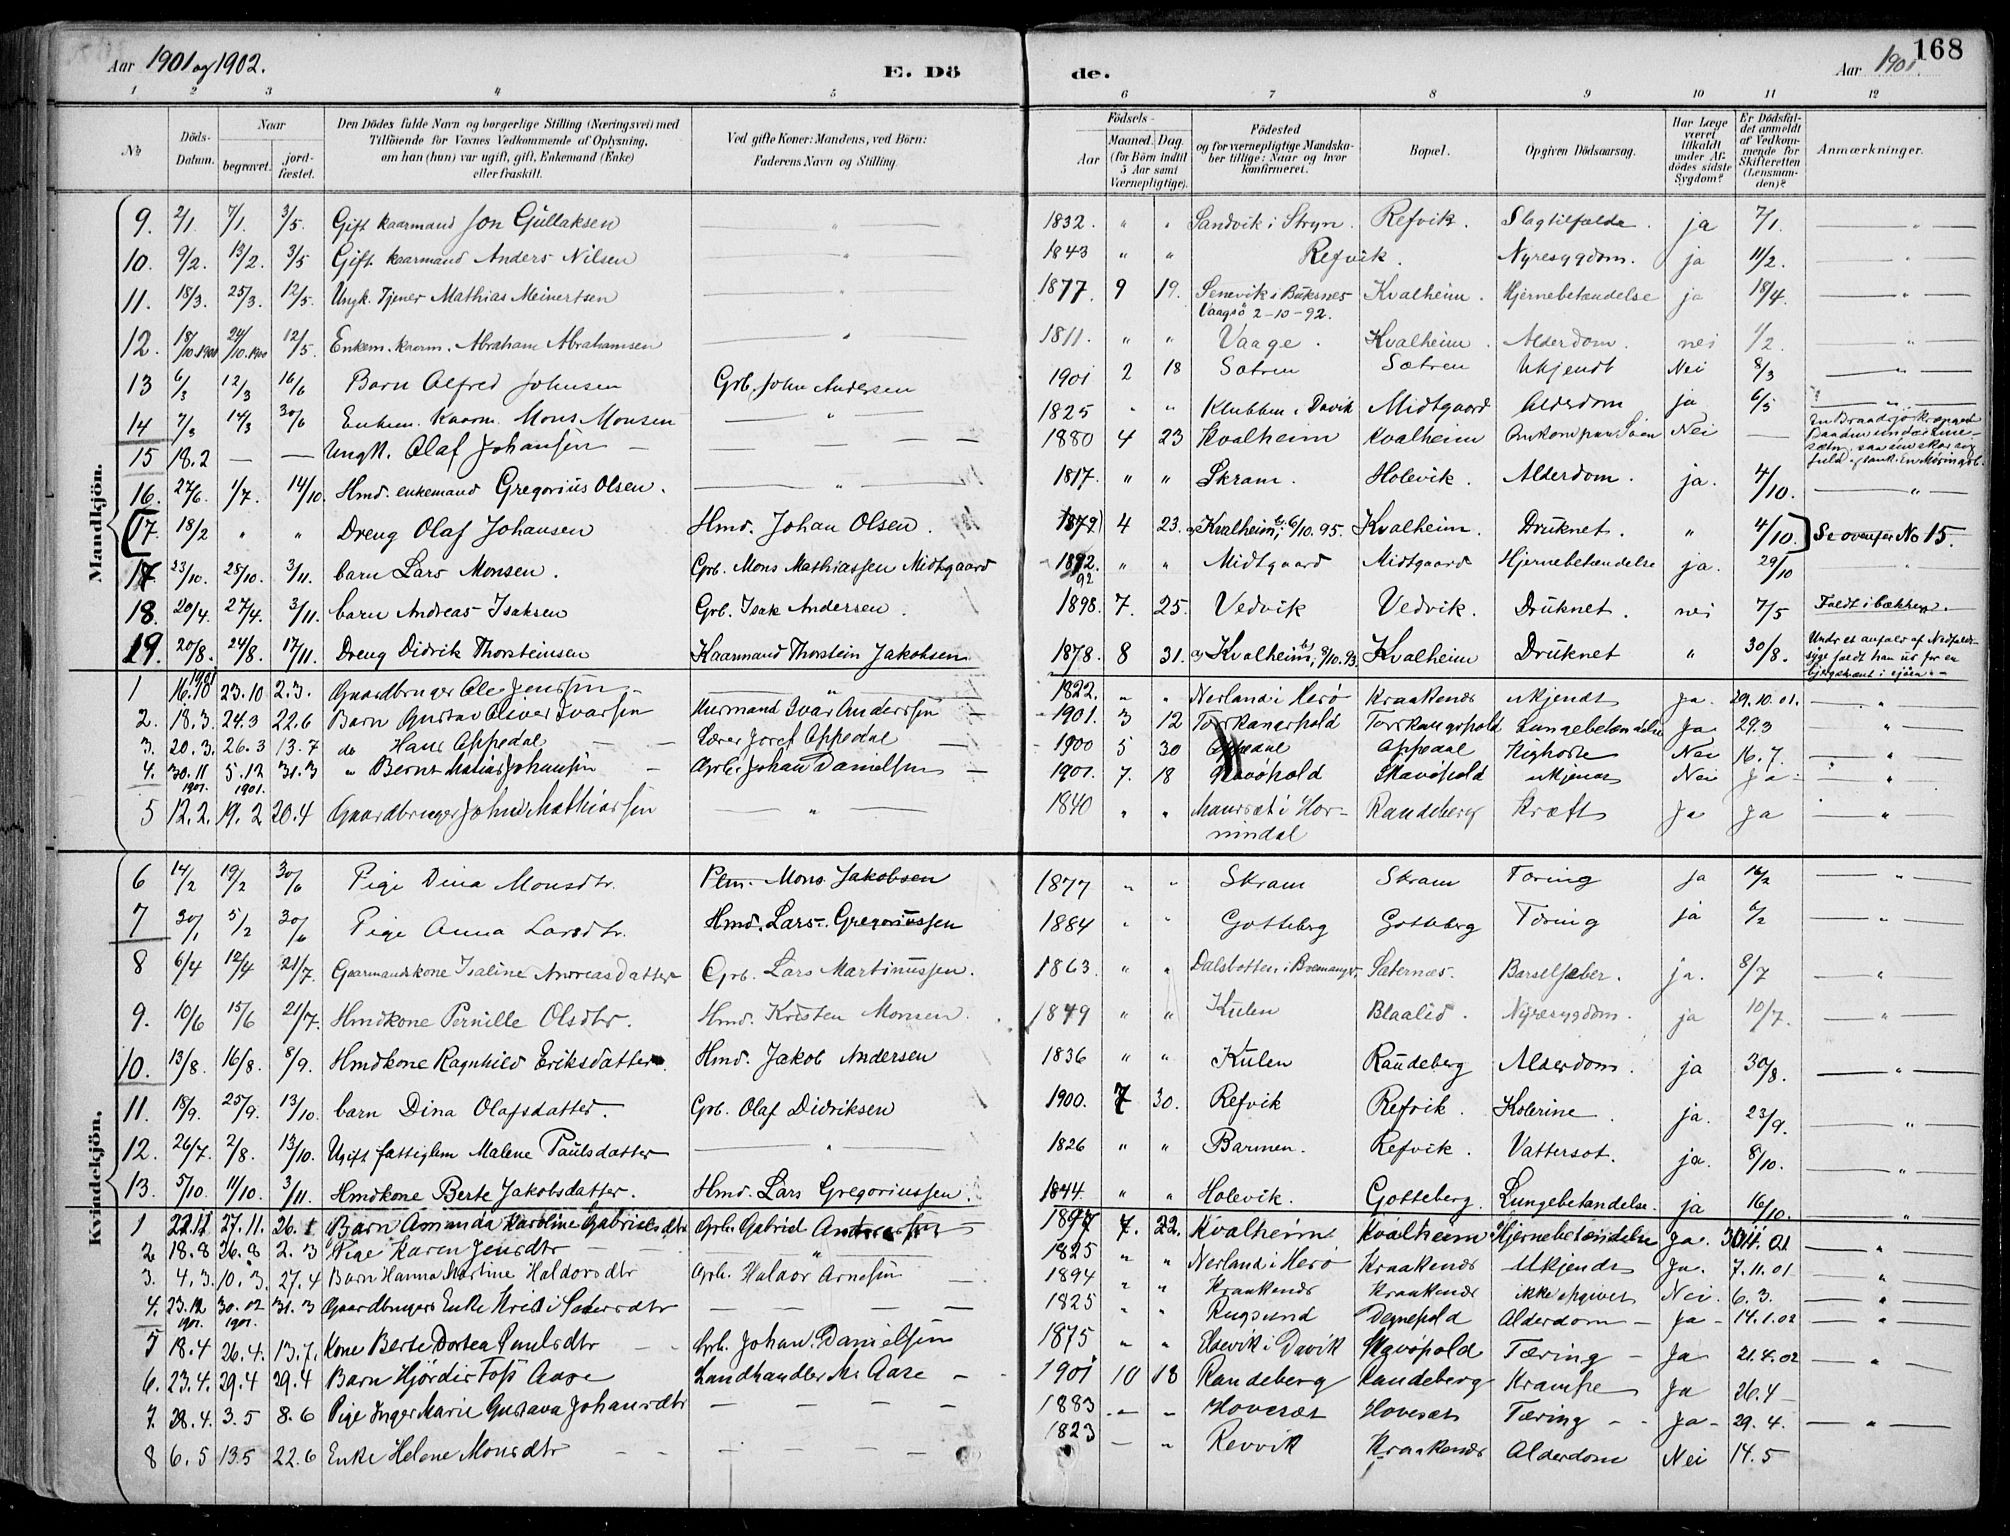 Aar 1901 og 1902.
E. Dö
de.
Aar 1901.
168
1 2 3 4 5 6 7 8 9 10 11 12
No
Döds-Datum.
Naar
begravet.
jord-fæstet.
Den Dödes fulde Navn og borgerlige Stilling (Næringsvei) med Tilföiende for Voxnes Vedkommende af Oplysning, om han (hun) var ugift, gift, Enkemand (Enke) eller fraskilt.
Ved gifte Koner: Mandens, ved Börn: Faderens Navn og Stilling.
Födsels-
Aar
Maaned. Dag.
(for Börn indtil 5 Aar samt Værnepligtige).
Födested og for værnepligtige Mandskaber tillige: Naar og hvor konfirmeret.
Bopæl.
Opgiven Dödsaarsag.
Har Læge været tilkaldt under Afdödes sidste Sygdom?
Er Dödsfaldet anmeldt af Vedkommende for Skifteretten (Lensmanden)?
Anmærkninger.
Mandkjön.
9. 2/1. 7/1. 3/5. Gift kaarmand Jon Gullaksen — " — 1832. " " Sandvik i Stryn. Refvik. Slagtilfælde. ja 7/1. — " —
10. 9/2. 13/2. 3/5 Gift kaarmand Anders Nilsen — " — 1843 " " Refvik. Nyresygdom. ja 11/2. — " —
11. 18/3. 25/3. 12/5. Ungk. Tjener Mathias Meinertsen — " — 1877. 9 19. Senevik i Buksnes Vaagsö 2-10-92. Kvalheim. Hjernebetændelse ja 18/4. — " —
12. 18/10.1900 24/10.1900 12/5. Enkem. kaarm. Abraham Abrahamsen — " — 1811. " " Vaage. Kvalheim. Alderdom. nei 1/2. — " —
13 6/3 12/3 16/6 Barn Alfred Johnsen Grb. John Andersen 1901 2 18 Sætren Sætren Ukjendt Nei 8/3 — " —
14 7/3 14/3 30/6 Enkem. Kaarm. Mons Monsen — " — 1825 " " Klubben i Davik Midtgaard Alderdom ja 6/5 — " —
15 18.2 — — Ungk. Olaf Johansen — — 1880 4 23 Kvalheim Kvalheim Omkom paa Söen Nei —
16. 27/6. 1/7. 14/10. Hmd. enkemand Gregorius Olsen. — " — 1817. " " Skram. Holevik. Alderdom. ja. 4/10. — " —
17. 18/2 " " Dreng Olaf Johansen Hmd. Johan Olsen. 1879 4 23. Kvalheim, 6/10.95. Kvalheim. Druknet. " 4/10. Se ovenfor No 15.
17. 23/10. 25/10. 3/11. barn Lars Monsen. Grb. Mons Mathiassen Midtgaard 1892. 92 " " Midtgaard Midtgaard Hjernebetændelse ja. 29/10 "
18. 20/4. 27/4. 3/11. barn Andreas Isaksen Grb. Isak Andersen. 1898. 7. 25. Vedvik Vedvik. Druknet. nei 7/5 Faldt i bækken.
19. 20/8. 24/8. 17/11. Dreng Didrik Thorsteinsen Kaarmand Thorstein Jakobsen 1878. 8 31. Kvalheim, 8/10.93. Kvalheim Druknet " 30/8. Under et anfald af Nedfaldssyge faldt han ud for en
1 1901 16.10 23.10 2.3. Gaardbruger Ole Jenssen — " — 1822. " " Nerland i Herö Kraakenæs ukjendt Ja. 29.10.01. — " —
2. 18.3. 24.3 22.6 Barn Gustav Oliver Ivarsen Kurmand Ivar Anderssen 1901. 3 12 Torskangerpold Torskangerpold Lungebetændelse Ja 29.3 "
3. 20.3. 26.3 13.7 do Hans Oppedal Lærer Josef Oppedal 1900 5 30 Oppedal Oppedal Kighoste Nei 16.7. "
4. 30.11 1901. 5.12 1901. 31.3 " Bernt Matias Johansen Grb. Johan Danielsen 1901. 7. 18 Skavöpold Skavöpold ukjendt Nei Ja "
5 12.2. 19.2 20.4 Gaardbruger John Mathiassen — " — 1840 " " Maurset i Hornindal Raudeberg Kræft Ja Ja "
Kvindekjön.
6 14/2 19/2 30/6 Pige Dina Monsdtr. Plm. Mons Jakobsen 1877 " " Skram Skram Tæring ja 16/2 — " —
7 30/1 5/2 30/6 Pige Anna Larsdtr. Hmd. Lars Gregoriussen 1884 " " Gotteberg Gotteberg Tæring ja 6/2 — " —
8 6/4 12/4 21/7. Gaarmandskone Isaline Andreasdatter Grb. Lars Martinussen. 1863. " " Dalsbotten i Bremanger. Sæternæs. Barselfeber. ja. 8/7 — " —
9. 10/6 15/6 21/7. Hmdkone Pernille Olsdtr. Hmd. Kristen Monsen. 1849 " " Kulen Blaalid. Nyresygdom. ja 10/7. — " —
10. 13/8. 16/8. 8/9. Hmdkone Ragnhild Eriksdatter. Hmd. Jakob Andersen 1836 " " Kulen Raudeberg Alderdom. ja 30/8. — " —
11. 18/9. 25/9. 13/10. barn Dina Olafsdatter. Grb. Olaf Didriksen 1900. 7 30. Refvik Refvik. Kolerine. ja. 23/9. — " —
12. 26/7. 2/8. 13/10. Ugift fattiglem Malene Paulsdatter — " — 1826 " " Barmen. Refvik. Vattersot. ja. 8/10. — " —
13. 5/10. 11/10. 3/11. Hmdkone Berte Jakobsdatter. Hmd. Lars Gregoriussen. 1844. " " Holevik. Gotteberg. Lungebetændelse. ja 16/10. "
1 22.11 27.11. 26.1 Barn Amanda Karoline Gabrielsdtr Grb. Gabriel Anderssen 1897 7. 22. Kvalheim Kvalheim Hjernebetændelse Ja. 30.11.01 — " —
2 18.8 26.8 2.3 Pige Karen Jensdtr — " — 1825 " " Nerland i Herö Kraakenæs Ukjendt Ja. 7.11.01 "
3. 4.3. 10.3. 27.4 Barn Hanna Martine Haldorsdtr Grb. Haldor Arnesen 1894 " " Kraakenæs Kraakenæs ikke opgivet Nei. 6.3. "
4. 23.12 1901. 30.12 1901. 31.3 Gaardbrugers Enke Kristi Sætersdtr — — — 1825 " " Rugsund Degnepold Alderdom — Ja — 14.1.02 "
5 18.4 26.4. 13.7. Kone Berte Dortea Paulsdtr Grb. Johan Danielsen 1875 " " Elsevik i Davik Skavöpold Tæring — Ja 21.4.02 "
6. 23.4. 29.4 29.4 Barn Hjördis Toss Aase Landhandler M. Aase 1901 10 18 Raudeberg Raudeberg Krampe Ja 26.4 —
7. 28.4. 3.5 8.6 Pige Inger Marie Gustava Johansdtr — — — 1883 " " Hovesæt Hovesæt Tæring — Ja — 29.4. — " —
8 6.5 13.5 22.6 Enke Helene Monsdtr — — — 1823 — " Revvik Kraakenæs Alderdom Nei 14.5